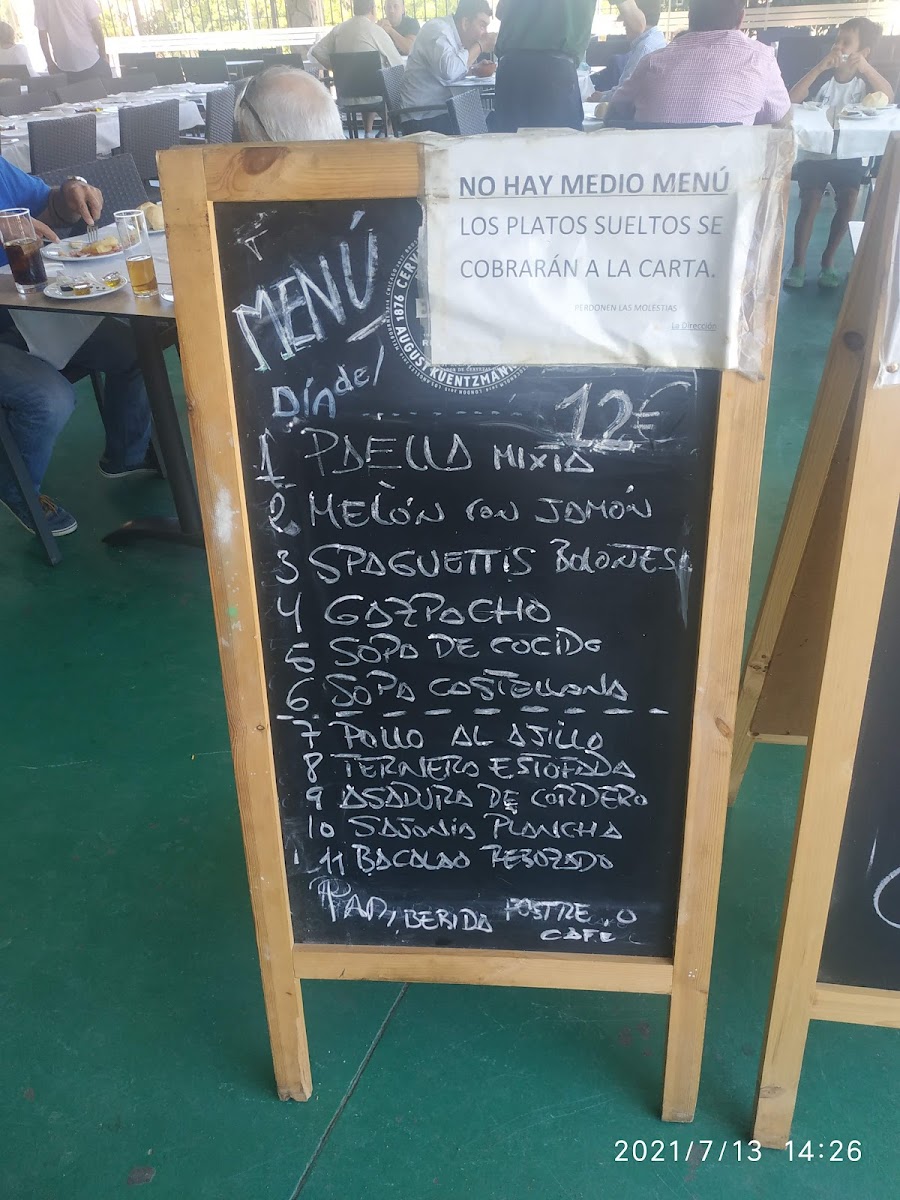 NO HAY MEDIO MENÚ
LOS PLATOS SUELTOS SE
COBRARÁN A LA CARTA.
PERDONEN LAS MOLESTIAS
La Dirección
MENÚ
del
Día
1876 CERV
AUGUST KUENTZMANN
12€
1 PAELLA MIXTA
2 MELÓN CON JAMÓN
3 SPAGUETTIS BOLOÑESA
4 GAZPACHO
5 SOPA DE COCIDO
6 SOPA CASTELLANA
7 POLLO AL AJILLO
8 TERNERA ESTOFADA
9 ASADURA DE CORDERO
10 SAJONIA PLANCHA
11 BACALAO REBOZADO
PAN, BEBIDA POSTRE, O
CAFE
2021/7/13 14:26